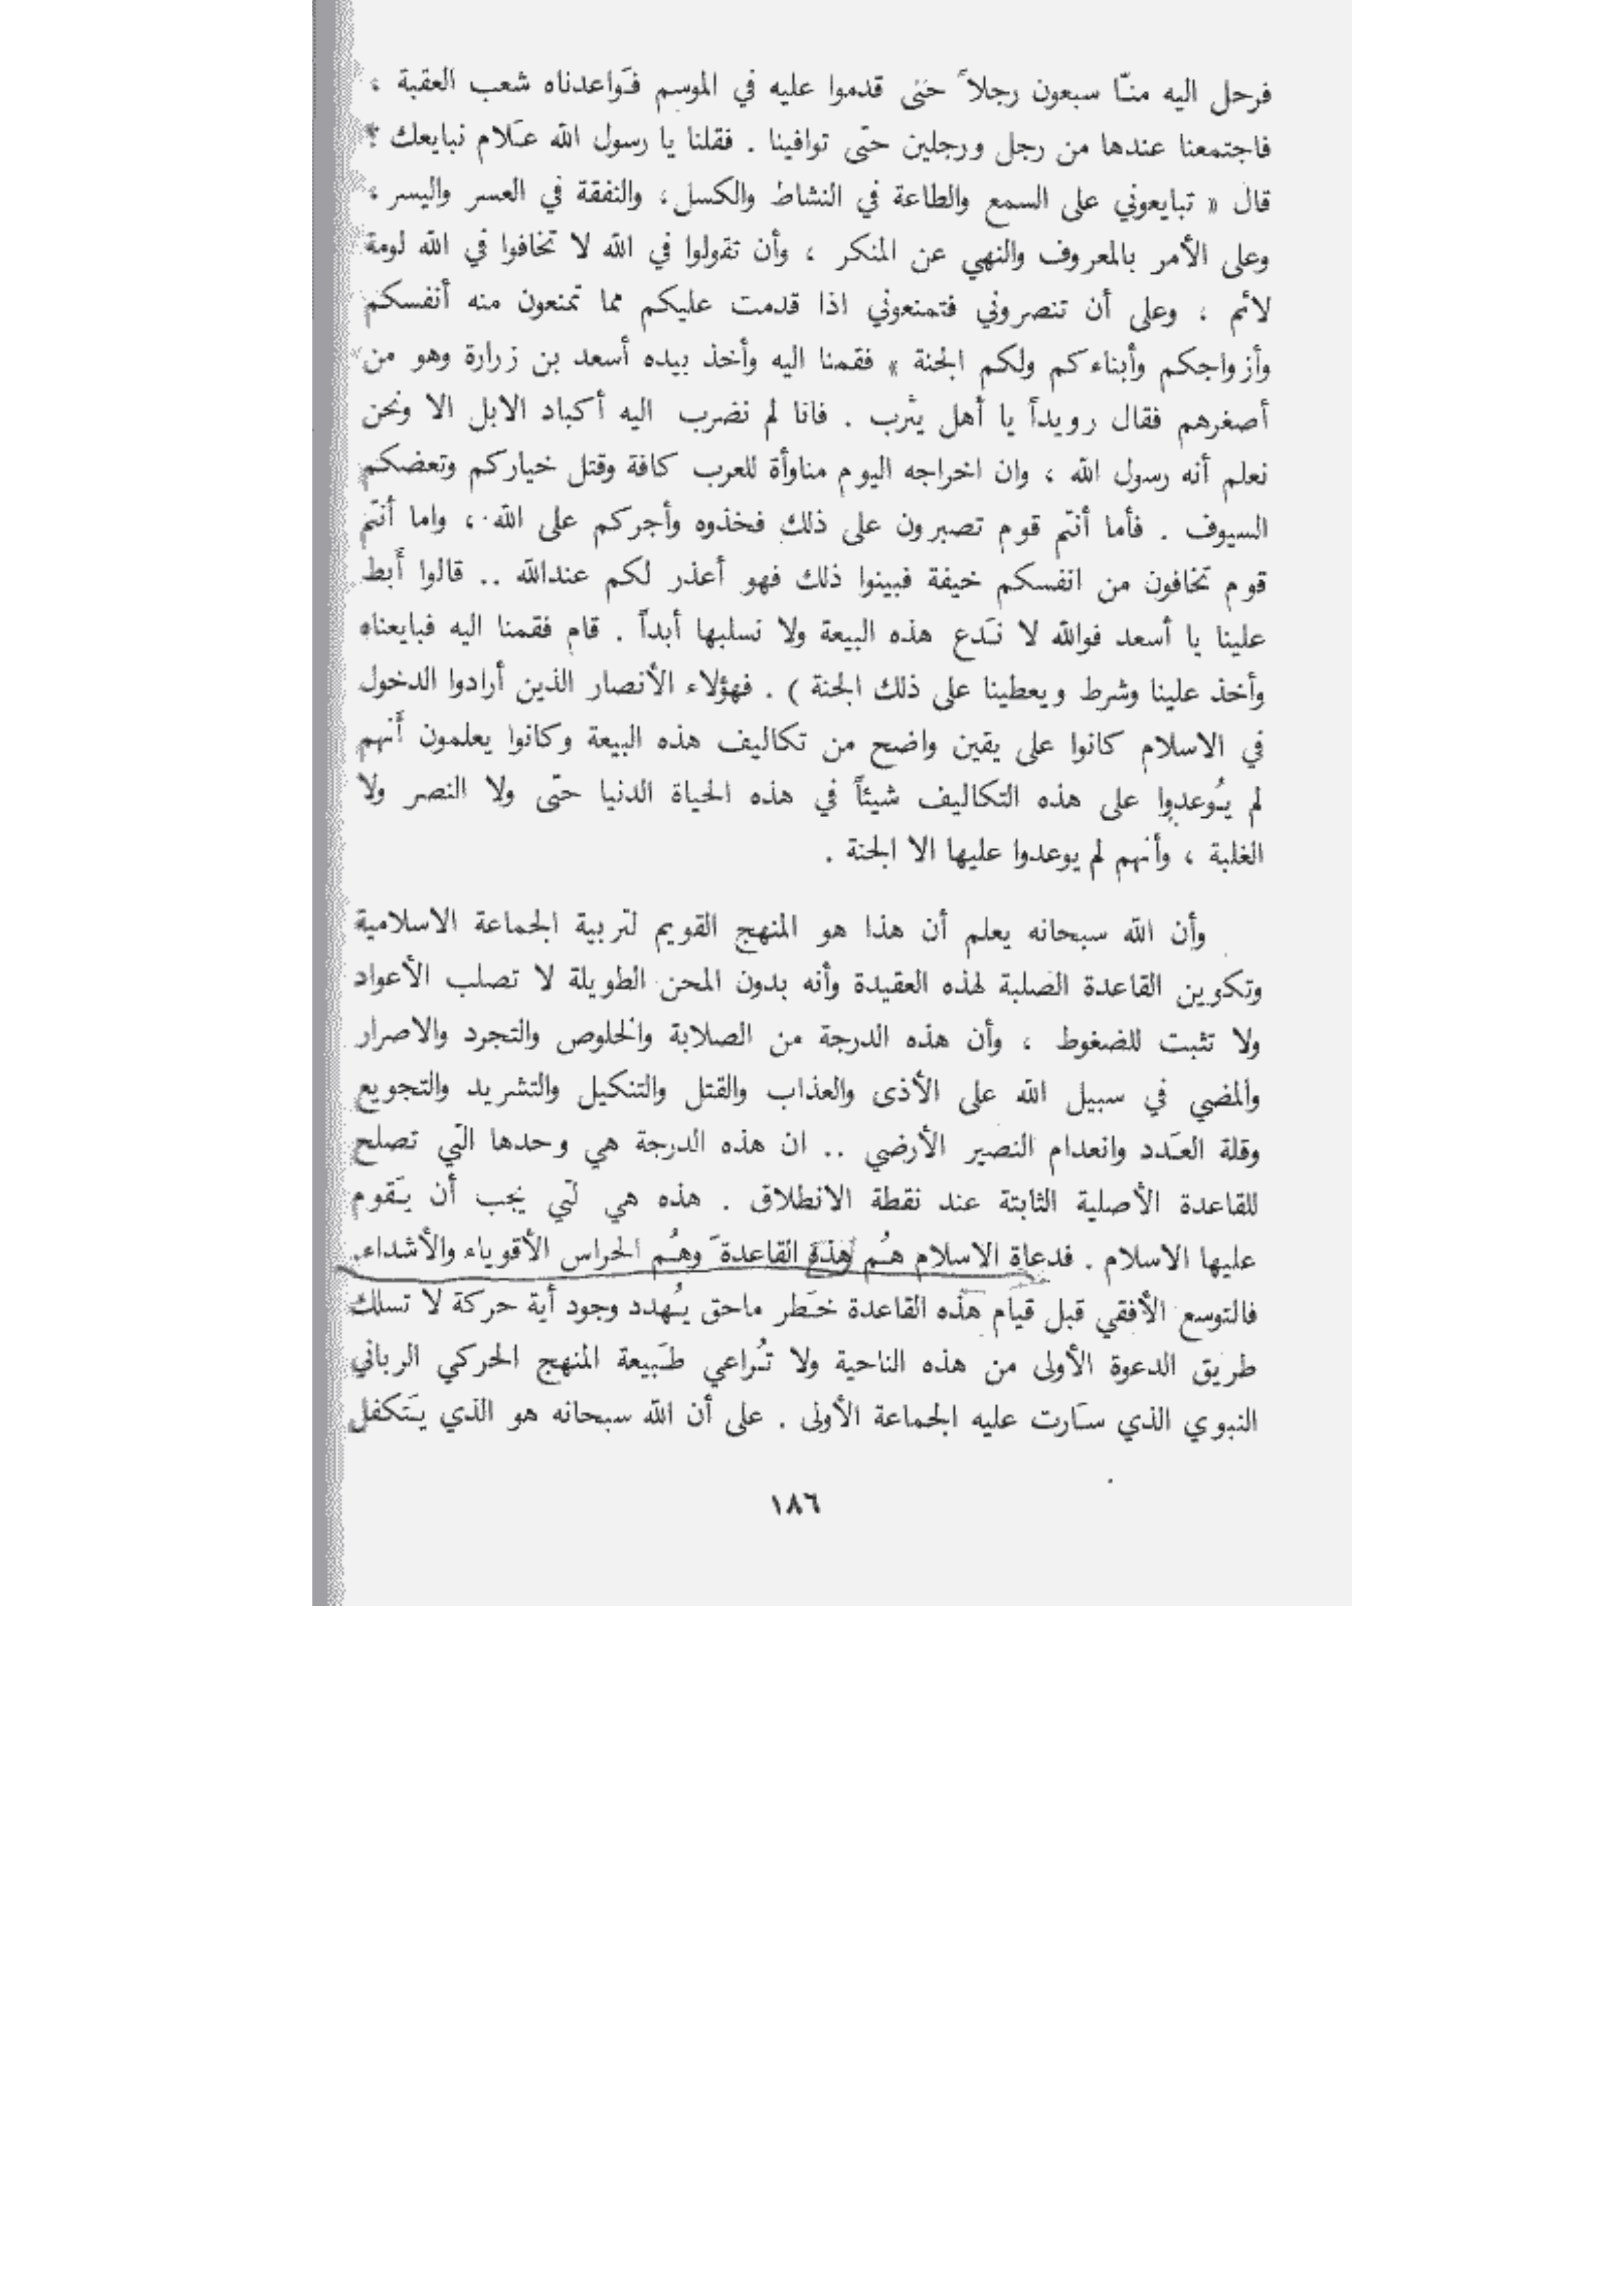 فرحل اليه منّا سبعون رجلاً حتى قدموا عليه في الموسم فَواعدناه شعب العقبة ،
فاجتمعنا عندها من رجل ورجلين حتّى توافينا . فقلنا يا رسول الله عَلام نبايعك ؟
قال « تبايعوني على السمع والطاعة في النشاط والكسل، والنفقة في العسر واليسر ،
وعلى الأمر بالمعروف والنهي عن المنكر ، وأن تقولوا في الله لا تخافوا في الله لومة
لائم ، وعلى أن تنصروني فتمنعوني اذا قدمت عليكم مما تمنعون منه أنفسكم
وأزواجكم وأبناءكم ولكم الجنة » فقمنا اليه وأخذ بيده أسعد بن زرارة وهو من
أصغرهم فقال رويداً يا أهل يثرب . فانا لم نضرب اليه أكباد الابل الا ونحن
نعلم أنه رسول الله ، وان اخراجه اليوم مناوأة للعرب كافة وقتل خياركم وتعضكم
السيوف . فأما أنتم قوم تصبرون على ذلك فخذوه وأجركم على الله ، واما أنتم
قوم تخافون من انفسكم خيفة فبينوا ذلك فهو أعذر لكم عندالله .. قالوا أبط
علينا يا أسعد فوالله لا نَدع هذه البيعة ولا نسلبها أبداً . قام فقمنا اليه فبايعناه
وأخذ علينا وشرط ويعطينا على ذلك الجنة ) . فهؤلاء الأنصار الذين أرادوا الدخول
في الاسلام كانوا على يقين واضح من تكاليف هذه البيعة وكانوا يعلمون أنهم
لم يُوعدوا على هذه التكاليف شيئاً في هذه الحياة الدنيا حتّى ولا النصر ولا
الغلبة ، وأنهم لم يوعدوا عليها الا الجنة .
وأن الله سبحانه يعلم أن هذا هو المنهج القويم لتربية الجماعة الاسلامية
وتكوين القاعدة الصلبة لهذه العقيدة وأنه بدون المحن الطويلة لا تصلب الأعواد
ولا تثبت للضغوط ، وأن هذه الدرجة من الصلابة والخلوص والتجرد والاصرار
والمضي في سبيل الله على الأذى والعذاب والقتل والتنكيل والتشريد والتجويع
وقلة العَدد وانعدام النصير الأرضي .. ان هذه الدرجة هي وحدها التي تصلح
للقاعدة الأصلية الثابتة عند نقطة الانطلاق . هذه هي لتي يجب أن يَقوم
عليها الاسلام . فدعاة الاسلام هُم هذه القاعدة وهُم الحراس الأقوياء والأشداء.
فالتوسع الأفقي قبل قيام هذه القاعدة خَطر ماحق يُهدد وجود أية حركة لا تسلك
طريق الدعوة الأولى من هذه الناحية ولا تُراعي طَبيعة المنهج الحركي الرباني
النبوي الذي سَارت عليه الجماعة الأولى . على أن الله سبحانه هو الذي يَتكفل
١٨٦